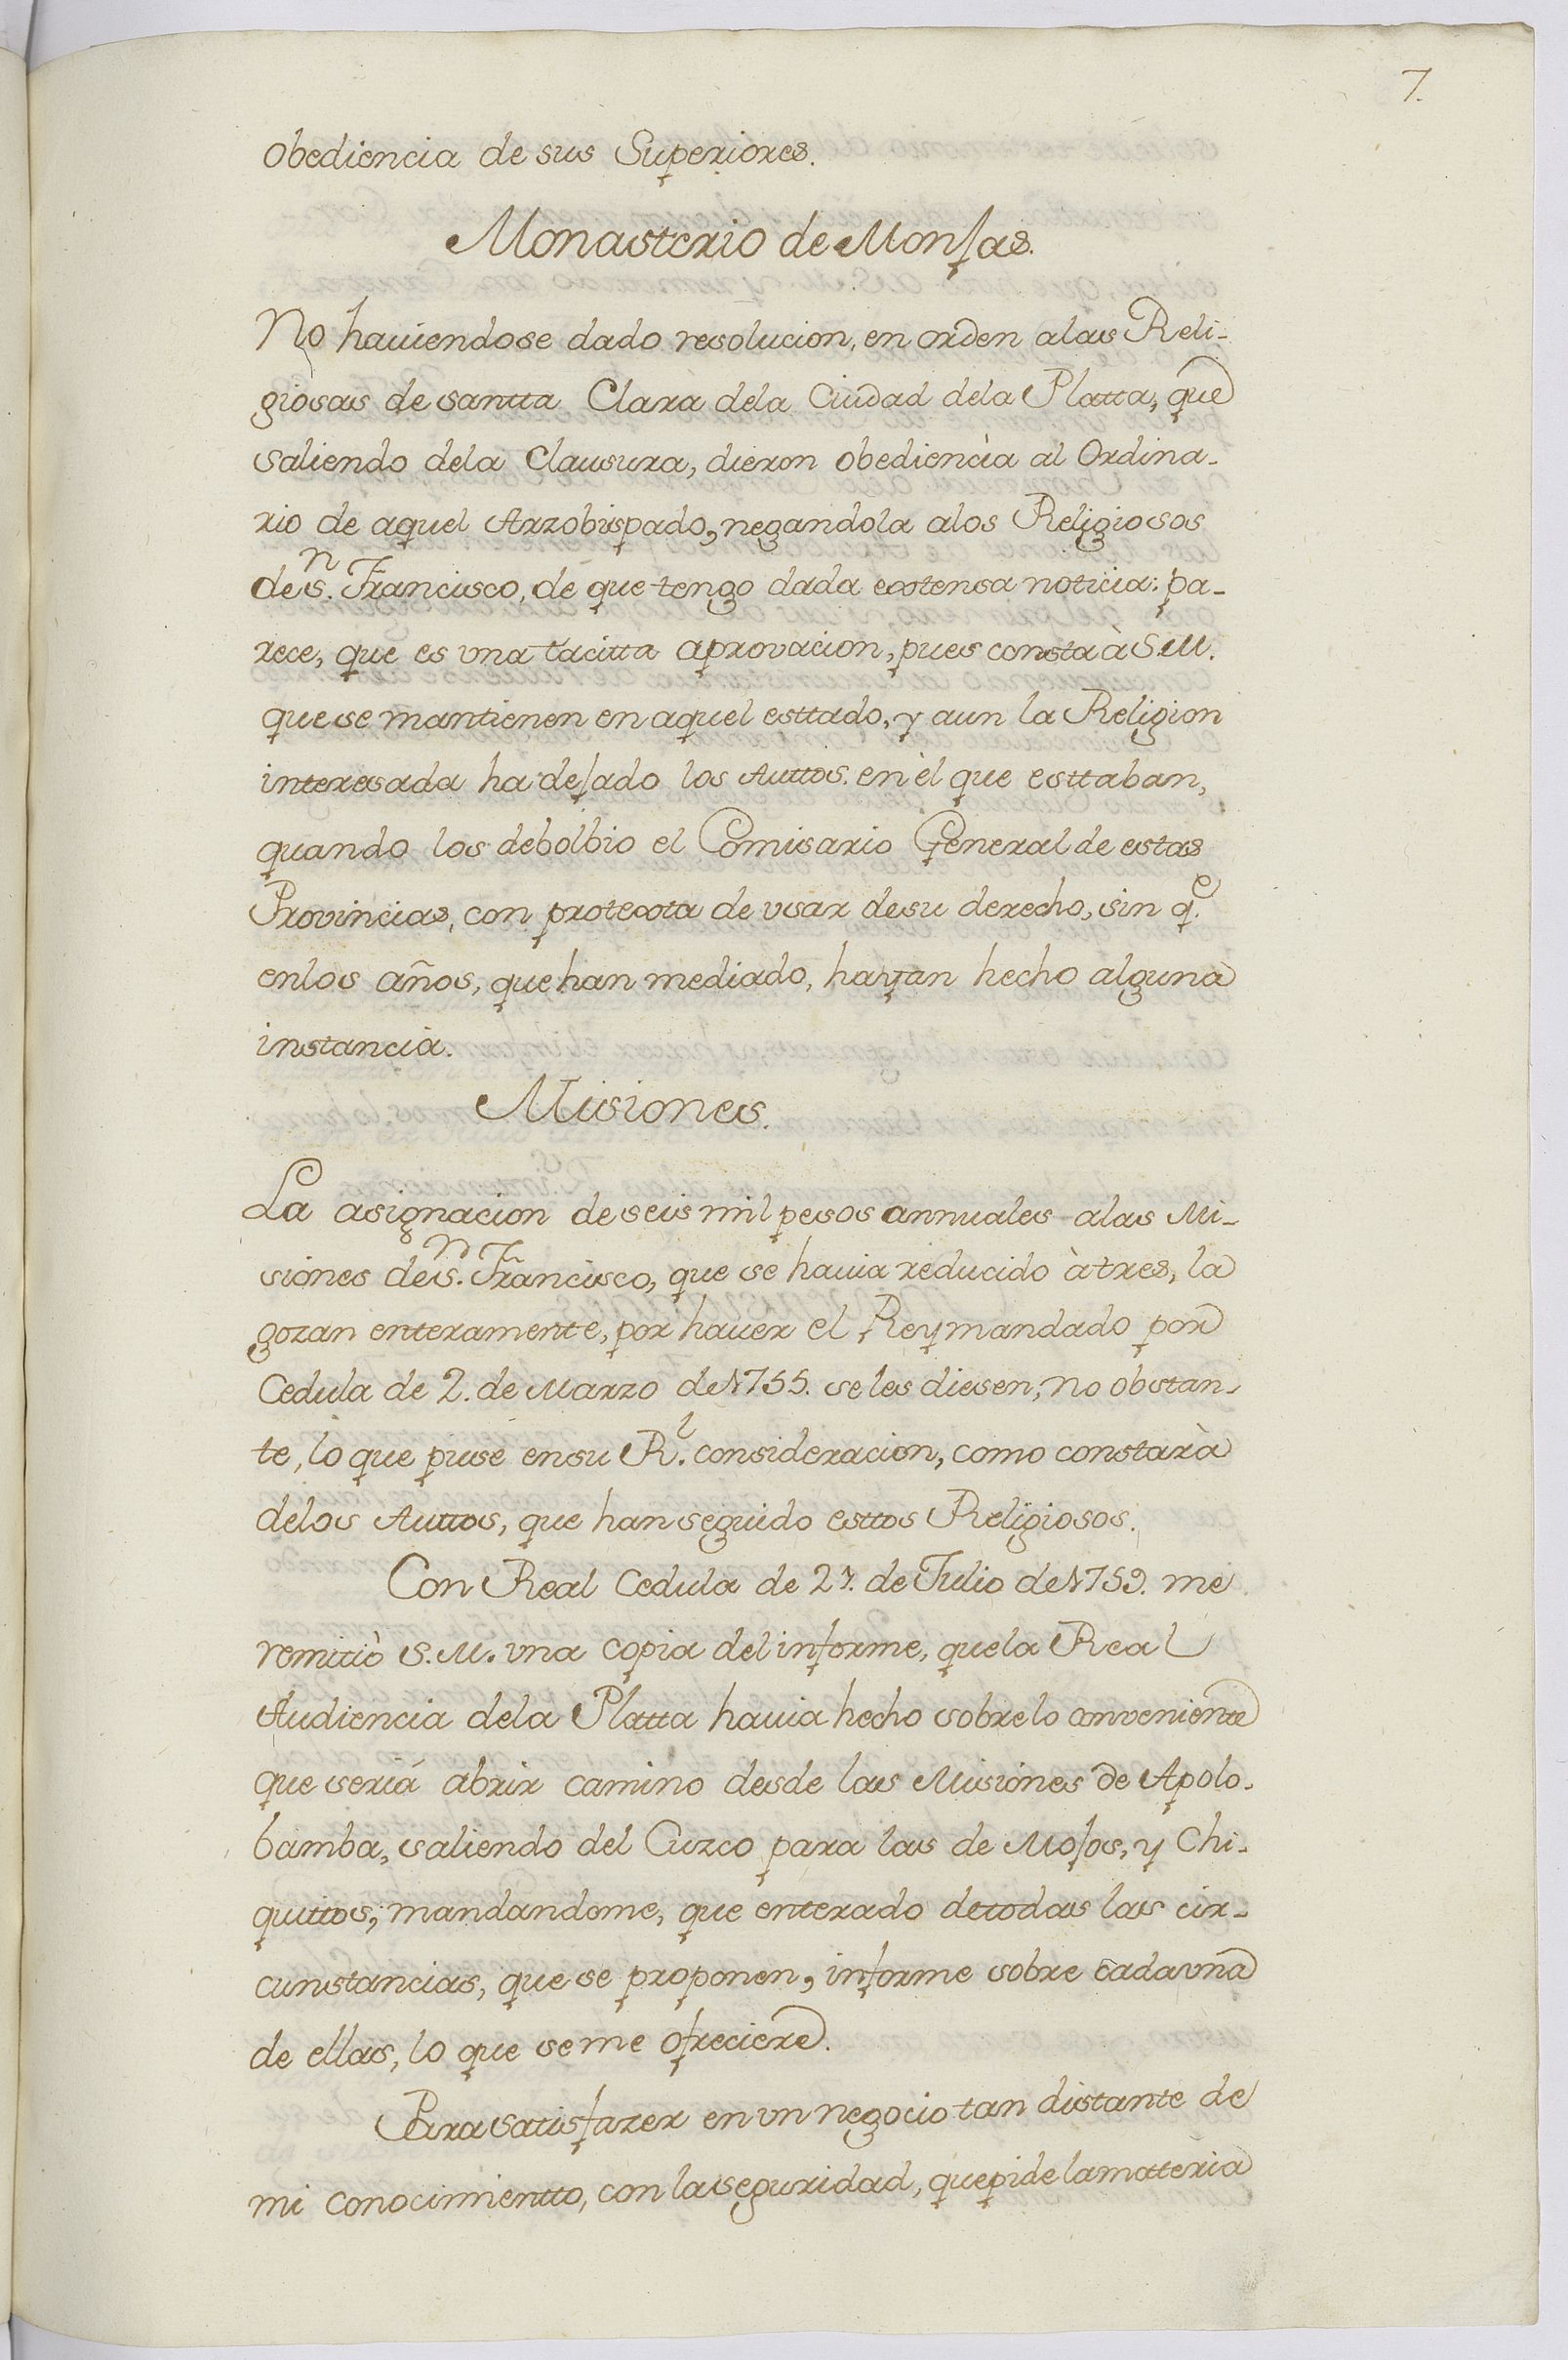 7.
obediencia de sus Superiores.
Monasterio de Monjas.
No haviendose dado resolucion, en orden alas Reli-
giosas de santta Clara dela Ciudad dela Platta, que
saliendo dela Clausura, dieron obediencia al Ordina-
rio de aquel Arzobispado, negandola alos Religiosos
de S.n Francisco, de que tengo dada extensa noticia: pa-
rece, que es vna tacitta aprovacion, pues consta à S.M.
que se mantienen en aquel esttado, y aun la Religion
interesada ha dejado los Auttos. en èl que esttaban,
quando los debolbio el Comisario General de estas
Provincias, con protexta de vsar desu derecho, sin q.e
enlos años, que han mediado, hayan hecho alguna
instancia.
Misiones.
La asignacion de seis mil pesos annuales alas Mi-
siones de S.n Francisco, que se havia reducido à tres, la
gozan enteramente, por haver el Rey mandado por
Cedula de 2. de Marzo de 1755. se les diesen, no obstan-
te, lo que puse ensu R.l consideracion, como constarà
delos Auttos, que han seguido esttos Religiosos.
Con Real Cedula de 27. de Julio de 1759. me
remitiò S.M. vna copia del informe, que la Real
Audiencia dela Platta havia hecho sobre lo conveniente
que seria abrir camino desde las Misiones de Apolo-
bamba, saliendo del Cuzco para las de Mojos, y Chi-
quittos; mandandome, que enterado de todas las cir-
cunstancias, que se proponen, informe sobre cada vna
de ellas, lo que se me ofreciere.
Para satisfazer en vn negocio tan distante de
mi conocimientto, con la seguridad, que pide la materia